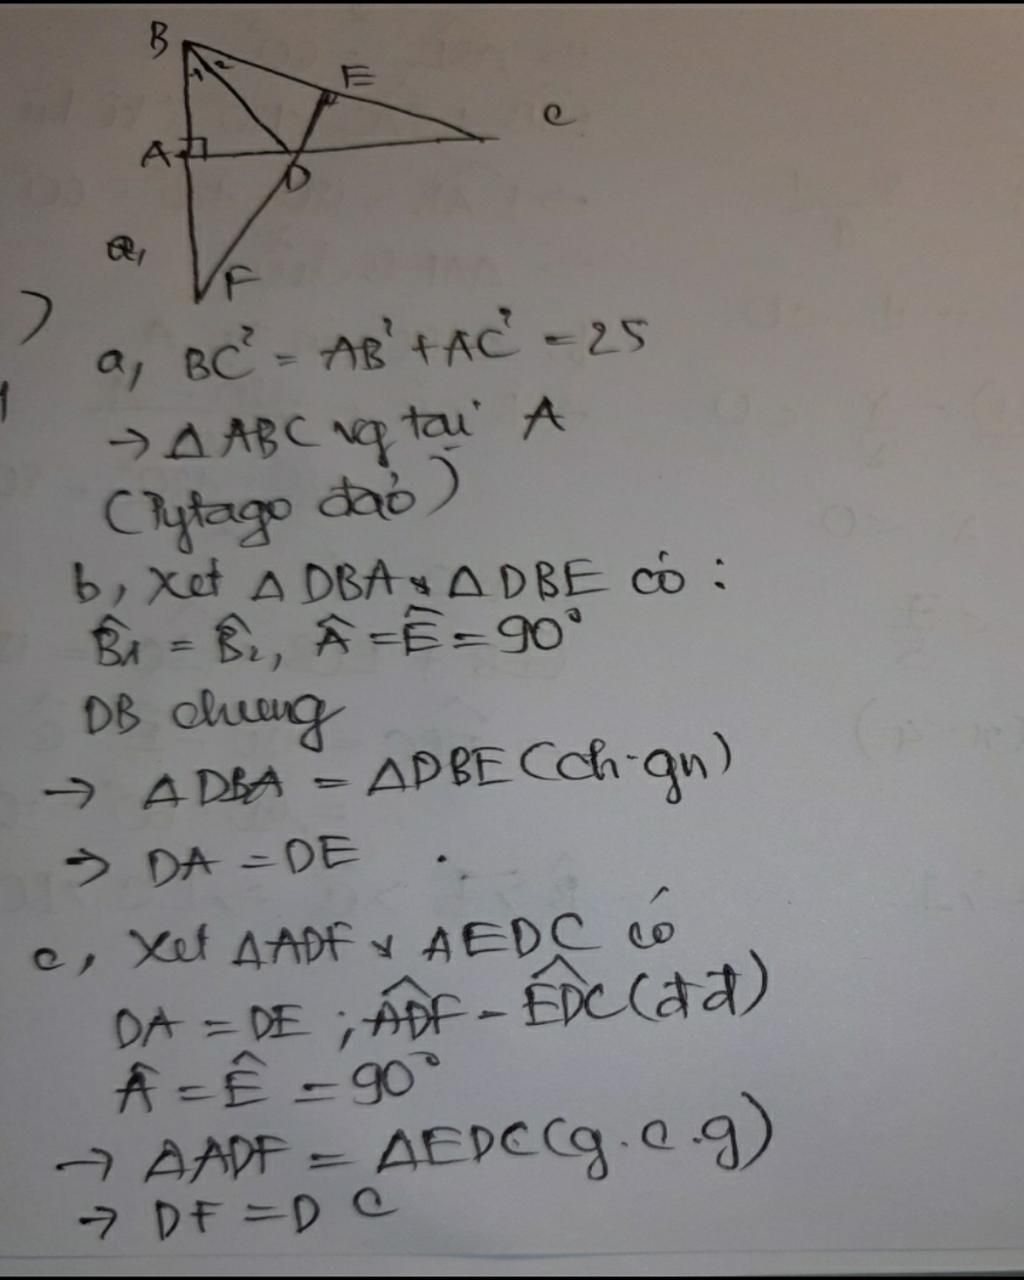 B
1 2
E
C
A
D
a,
F
a, BC² = AB² + AC² = 25
→ Δ ABC vg tại A
(Pytago đảo)
b, Xet Δ DBA & Δ DBE có :
B̂1 = B̂2, Â = Ê = 90°
DB chung
→ Δ DBA = ΔDBE (ch-gn)
→ DA = DE .
c, Xet ΔADF & ΔEDC có
DA = DE ; ADF̂ = EDĈ (đđ)
Â = Ê = 90°
→ ΔADF = ΔEDC (g.c.g)
→ DF = DC